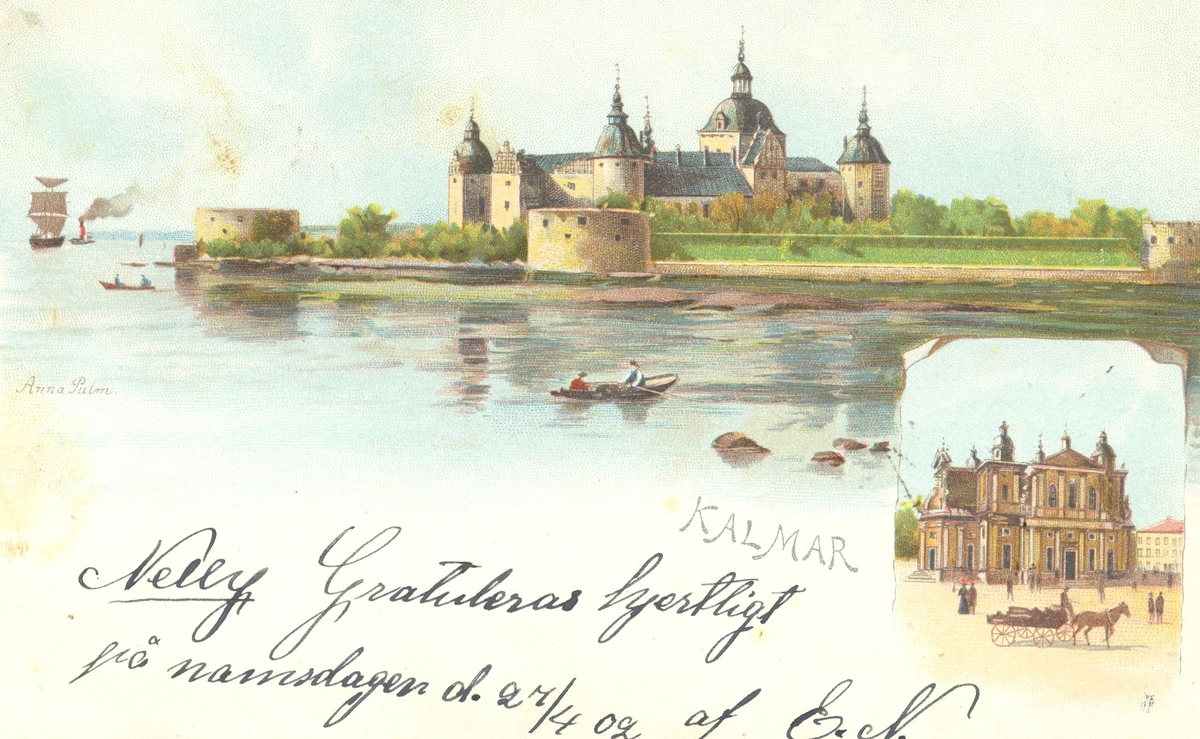 Anna Palm.
KALMAR
Nelly Gratuleras hjertligt
på namsdagen d. 27/4 02 af E. N.